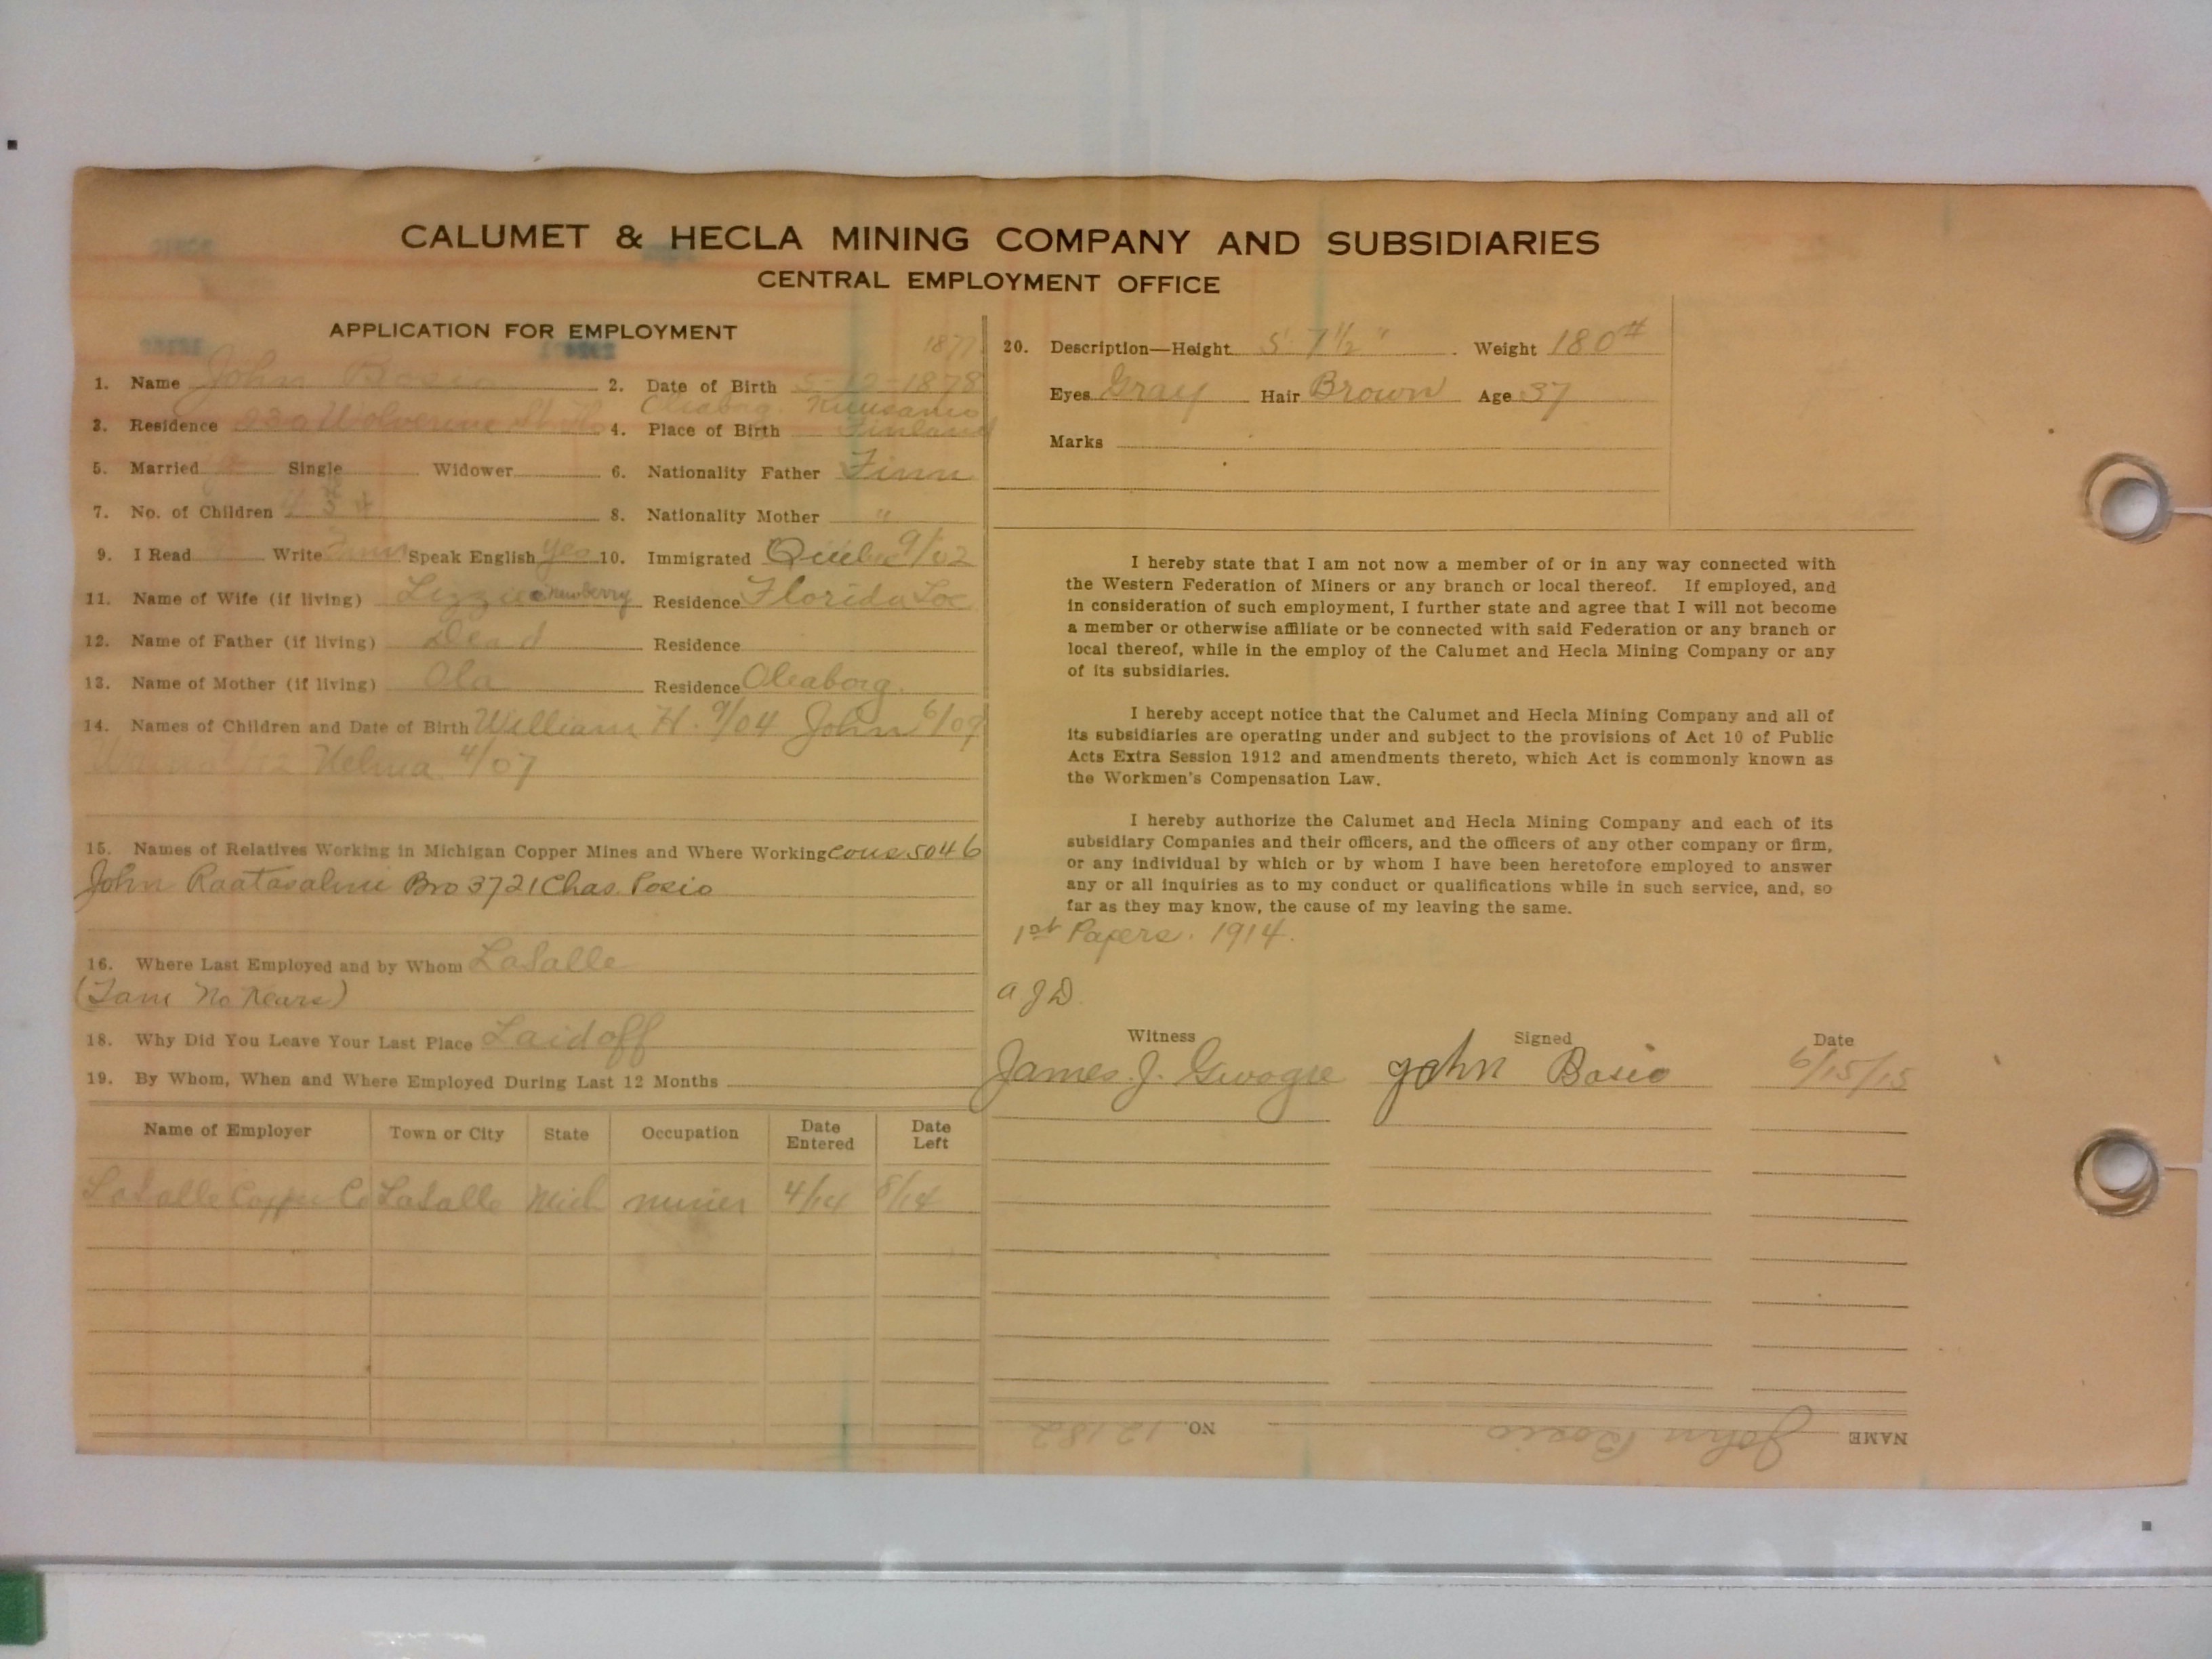 CALUMET & HECLA MINING COMPANY AND SUBSIDIARIES
CENTRAL EMPLOYMENT OFFICE
APPLICATION FOR EMPLOYMENT
1877
1. Name John Bosio 2. Date of Birth 5-12-1878
Oleaborg. Kuusamo
3. Residence Wolverine St. 4. Place of Birth Finland
5. Married Single Widower 6. Nationality Father Finn
7. No. of Children 4 8. Nationality Mother "
9. I Read Write Finn Speak English yes 10. Immigrated Quebec 9/02
11. Name of Wife (if living) Lizzie Residence Florida Loc
12. Name of Father (if living) Dead Residence
13. Name of Mother (if living) Ola Residence Oleaborg.
14. Names of Children and Date of Birth William H. 9/04 John 6/09
Helma 4/07
15. Names of Relatives Working in Michigan Copper Mines and Where Working cous 5046
John Raatasalmi Bro 3721 Chas. Posio
16. Where Last Employed and by Whom LaSalle
(Tam No Kears)
18. Why Did You Leave Your Last Place Laid off
19. By Whom, When and Where Employed During Last 12 Months
Name of Employer Town or City State Occupation Date Entered Date Left
LaSalle Copper Co LaSalle Mich miner 4/14 8/14
20. Description—Height 5' 7 1/2 " Weight 180#
Eyes Gray Hair Brown Age 37
Marks
I hereby state that I am not now a member of or in any way connected with
the Western Federation of Miners or any branch or local thereof. If employed, and
in consideration of such employment, I further state and agree that I will not become
a member or otherwise affiliate or be connected with said Federation or any branch or
local thereof, while in the employ of the Calumet and Hecla Mining Company or any
of its subsidiaries.
I hereby accept notice that the Calumet and Hecla Mining Company and all of
its subsidiaries are operating under and subject to the provisions of Act 10 of Public
Acts Extra Session 1912 and amendments thereto, which Act is commonly known as
the Workmen's Compensation Law.
I hereby authorize the Calumet and Hecla Mining Company and each of its
subsidiary Companies and their officers, and the officers of any other company or firm,
or any individual by which or by whom I have been heretofore employed to answer
any or all inquiries as to my conduct or qualifications while in such service, and, so
far as they may know, the cause of my leaving the same.
1st Papers. 1914.
a J D.
Witness Signed Date
James. J. John Bosio 6/15/15
NAME John Bosio NO. 12182